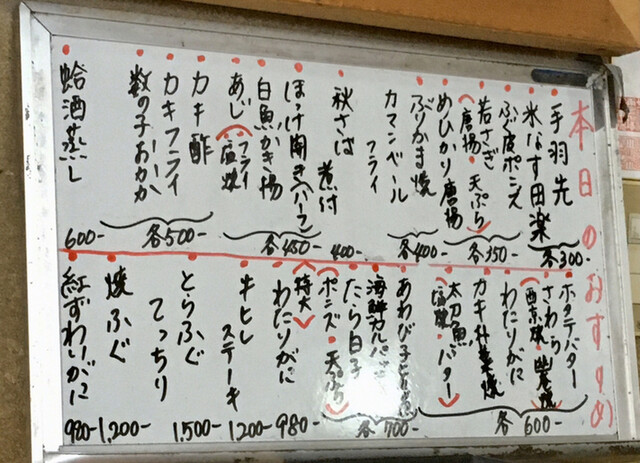 本日のおすすめ
手羽先
米なす田楽
ふぐ皮ポン酢
各300-
若さぎ
唐揚・天ぷら
めひかり唐揚
各350-
ぶりかま焼
カマンベール
フライ
各400-
秋さば
煮付
400-
ほっけ開き(ハーフ)
白魚かき揚
あじ
フライ
塩焼
各450-
カキ酢
カキフライ
数の子おかか
各500-
蛤酒蒸し
600-
ホタテバター
さわら
西京焼・幽庵焼
わたりがに
カキ朴葉焼
太刀魚
塩焼・バター
各600-
あわび子
海鮮カルパッチョ
たら白子
ポンズ・天ぷら
各700-
特大
わたりがに
980-
牛ヒレ
ステーキ
1200-
とらふぐ
てっちり
1,500-
焼ふぐ
1,200-
紅ずわいがに
980-